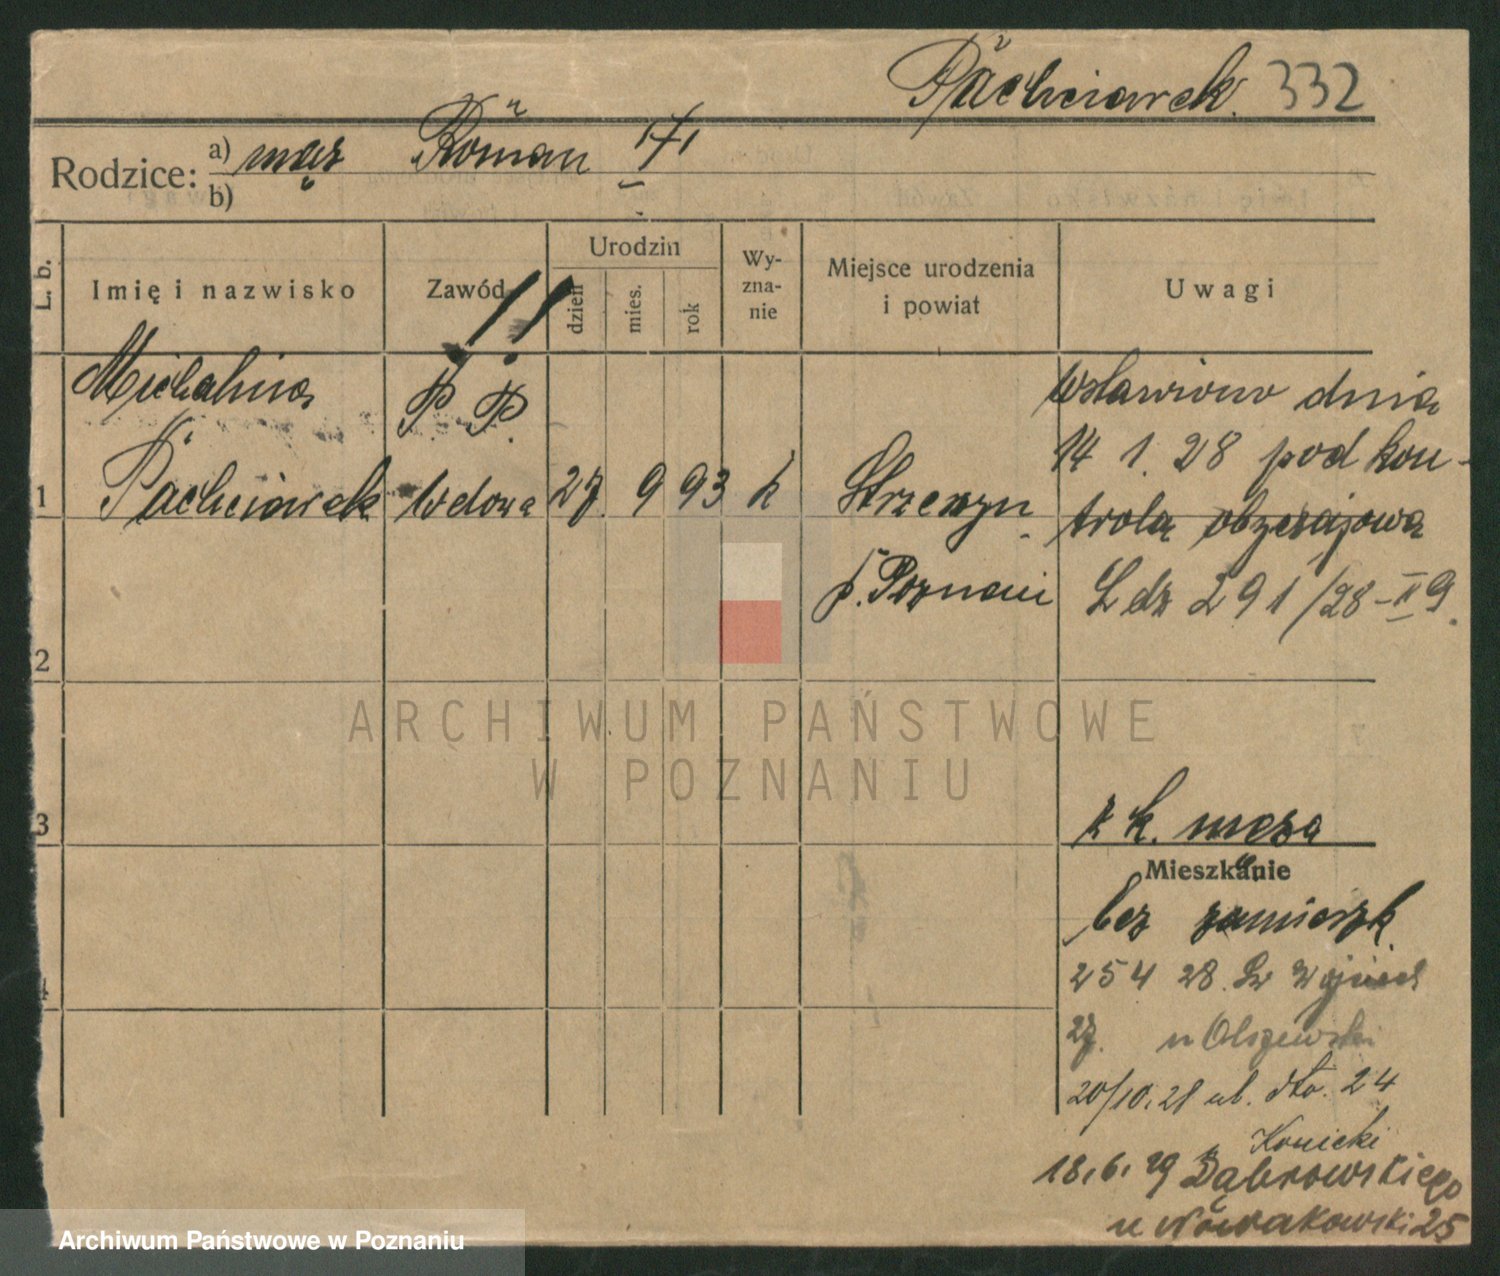 Pachciarek. 332
Rodzice: a) mąż Roman 1/1
b)
L. b. Imię i nazwisko Zawód Urodzin dzień mies. rok Wyznanie Miejsce urodzenia i powiat Uwagi
Michalina P. P. wstawiono dnia
14 1. 28 pod kon-
1 Pachciarek wdowa 27. 9 93 k Strzeszyn
trolą obyczajową
p. Poznań L dz 291/28-II 9.
2
ARCHIWUM PAŃSTWOWE
W POZNANIU
3 z k. męża
Mieszkanie
bez zamieszk.
4 25 4 28. Św Wojciech
27. u Olszewski
20/10.28 ul. dto. 24
Konicki
18.6.29 Dąbrowskiego
u Nowakowski 25
Archiwum Państwowe w Poznaniu